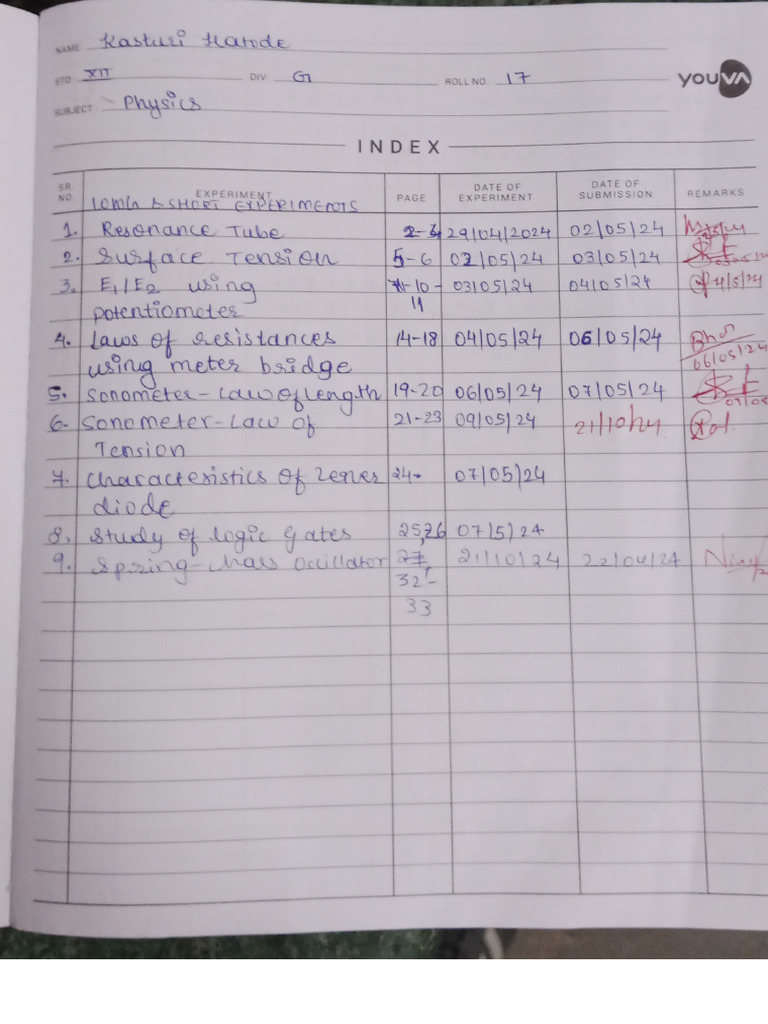 NAME: Kasturi Harode
STD.: XII DIV. G1 ROLL NO. 17 YOUVA
SUBJECT: Physics
INDEX
SR. NO. EXPERIMENT PAGE DATE OF EXPERIMENT DATE OF SUBMISSION REMARKS
LONG & SHORT EXPERIMENTS
1. Resonance Tube 2-4 29/04/2024 02/05/24
2. Surface Tension 5-6 02/05/24 03/05/24
3. E1/E2 using 10- 03/05/24 04/05/24 4/5/24
potentiometer 11
4. Laws of resistances 14-18 04/05/24 06/05/24
using meter bridge 06/05/24
5. Sonometer-Law of length 19-20 06/05/24 07/05/24
6. Sonometer-Law of 21-23 09/05/24
Tension
7. Characteristics of Zener 24- 07/05/24
diode
8. Study of logic gates 25,26 07/5/24
9. Spring-Mass Oscillator 27, 21/10/24 22/04/24
32-
33